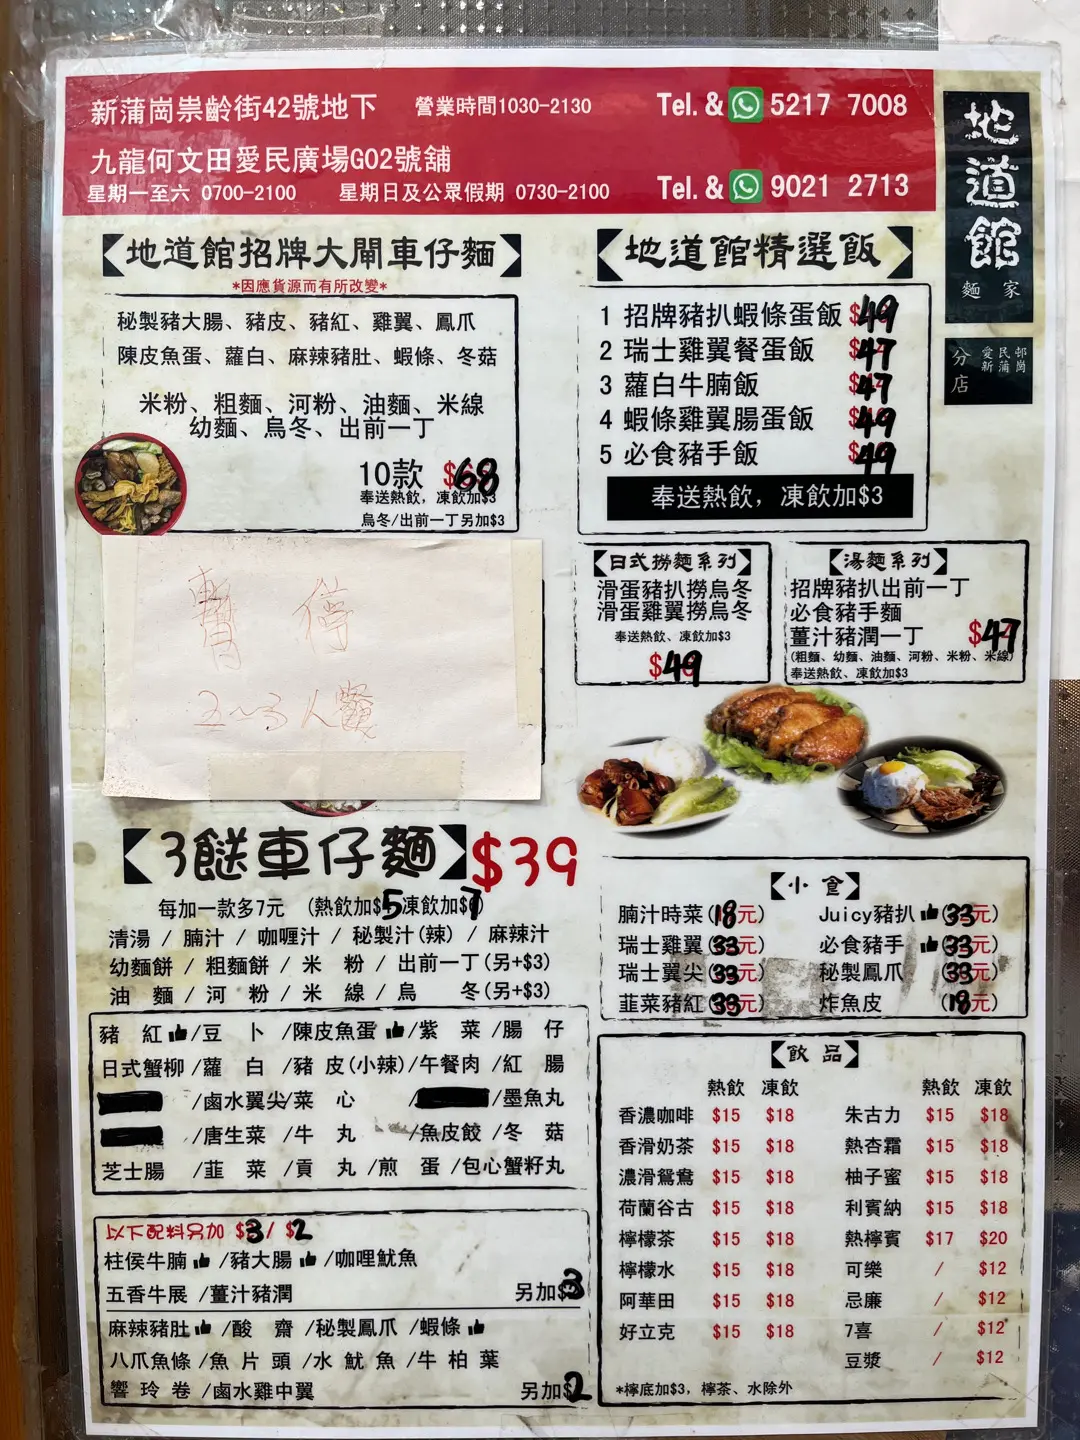 新蒲崗崇齡街42號地下 營業時間1030-2130 Tel. & 5217 7008
九龍何文田愛民廣場G02號舖
星期一至六 0700-2100 星期日及公眾假期 0730-2100 Tel. & 9021 2713
地道館
麵家
分店
愛民邨
新蒲崗
【地道館招牌大閘車仔麵】
*因應貨源而有所改變*
秘製豬大腸、豬皮、豬紅、雞翼、鳳爪
陳皮魚蛋、蘿白、麻辣豬肚、蝦條、冬菇
米粉、粗麵、河粉、油麵、米線
幼麵、烏冬、出前一丁
10款 $68
奉送熱飲, 凍飲加$3
烏冬/出前一丁另加$3
【地道館精選飯】
1 招牌豬扒蝦條蛋飯 $49
2 瑞士雞翼餐蛋飯 $47
3 蘿白牛腩飯 $47
4 蝦條雞翼腸蛋飯 $49
5 必食豬手飯 $49
奉送熱飲, 凍飲加$3
暫停
2~3人餐
【日式撈麵系列】
滑蛋豬扒撈烏冬
滑蛋雞翼撈烏冬
奉送熱飲、凍飲加$3
$49
【湯麵系列】
招牌豬扒出前一丁
必食豬手麵
薑汁豬潤一丁 $47
(粗麵、幼麵、油麵、河粉、米粉、米線)
奉送熱飲、凍飲加$3
【3餸車仔麵】$39
每加一款多7元 (熱飲加$5凍飲加$7)
清湯 / 腩汁 / 咖喱汁 / 秘製汁(辣) / 麻辣汁
幼麵餅 / 粗麵餅 / 米 粉 / 出前一丁(另+$3)
油 麵 / 河 粉 / 米 線 / 烏 冬(另+$3)
豬 紅 /豆 卜 /陳皮魚蛋 /紫 菜 /腸 仔
日式蟹柳 /蘿 白 /豬 皮(小辣) /午餐肉 /紅 腸
/鹵水翼尖/菜 心 / /墨魚丸
/唐生菜 /牛 丸 /魚皮餃 /冬 菇
芝士腸 /韮 菜 /貢 丸 /煎 蛋 /包心蟹籽丸
以下配料另加 $3/ $2
柱侯牛腩 /豬大腸 /咖哩魷魚
五香牛展 /薑汁豬潤 另加$3
麻辣豬肚 /酸 齋 /秘製鳳爪 /蝦條
八爪魚條 /魚 片 頭 /水 魷 魚 /牛 柏 葉
響 玲 卷 /鹵水雞中翼 另加$2
【小食】
腩汁時菜(18元) Juicy豬扒 (33元)
瑞士雞翼(33元) 必食豬手 (33元)
瑞士翼尖(33元) 秘製鳳爪 (33元)
韮菜豬紅(33元) 炸魚皮 (18元)
【飲品】
熱飲 凍飲 熱飲 凍飲
香濃咖啡 $15 $18 朱古力 $15 $18
香滑奶茶 $15 $18 熱杏霜 $15 $18
濃滑鴛鴦 $15 $18 柚子蜜 $15 $18
荷蘭谷古 $15 $18 利賓納 $15 $18
檸檬茶 $15 $18 熱檸賓 $17 $20
檸檬水 $15 $18 可樂 / $12
阿華田 $15 $18 忌廉 / $12
好立克 $15 $18 7喜 / $12
豆漿 / $12
*檸底加$3, 檸茶、水除外